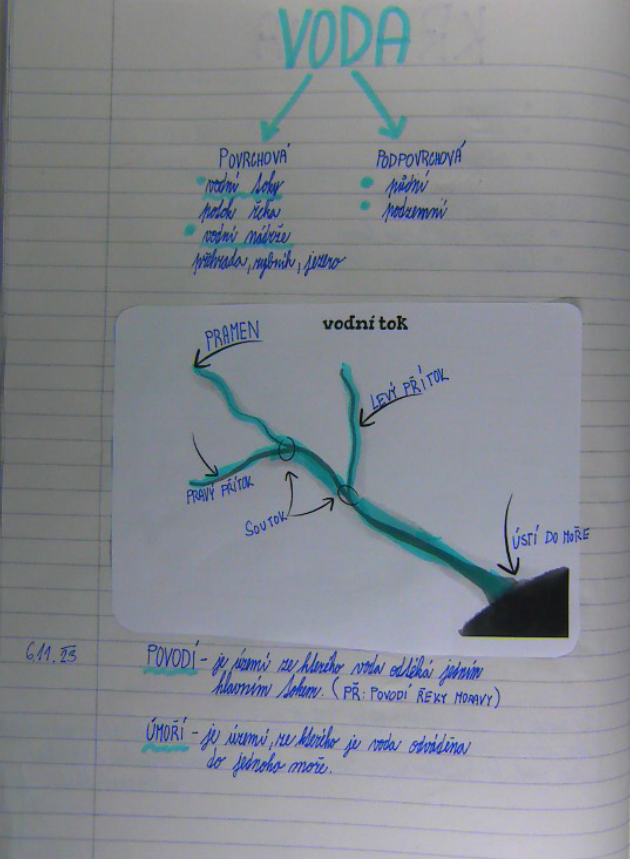 VODA
POVRCHOVÁ
vodní toky
potok řeka
vodní nádrže
přehrada, rybník, jezero
PODPOVRCHOVÁ
půdní
podzemní
vodní tok
PRAMEN
LEVÝ PŘÍTOK
PRAVÝ PŘÍTOK
SOUTOK
ÚSTÍ DO MOŘE
6.11.23
POVODÍ - je území ze kterého voda odtéká jedním
hlavním tokem. (PŘ: POVODÍ ŘEKY MORAVY)
ÚMOŘÍ - je území, ze kterého je voda odváděna
do jednoho moře.